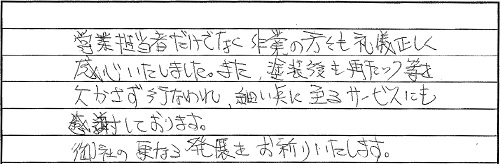 営業担当者だけでなく作業の方々も礼儀正しく
感心いたしました。また、塗装後も再チェック等を
欠かさず行なわれ、細い点に至るサービスにも
感謝しております。
御社の更なる発展をお祈りいたします。